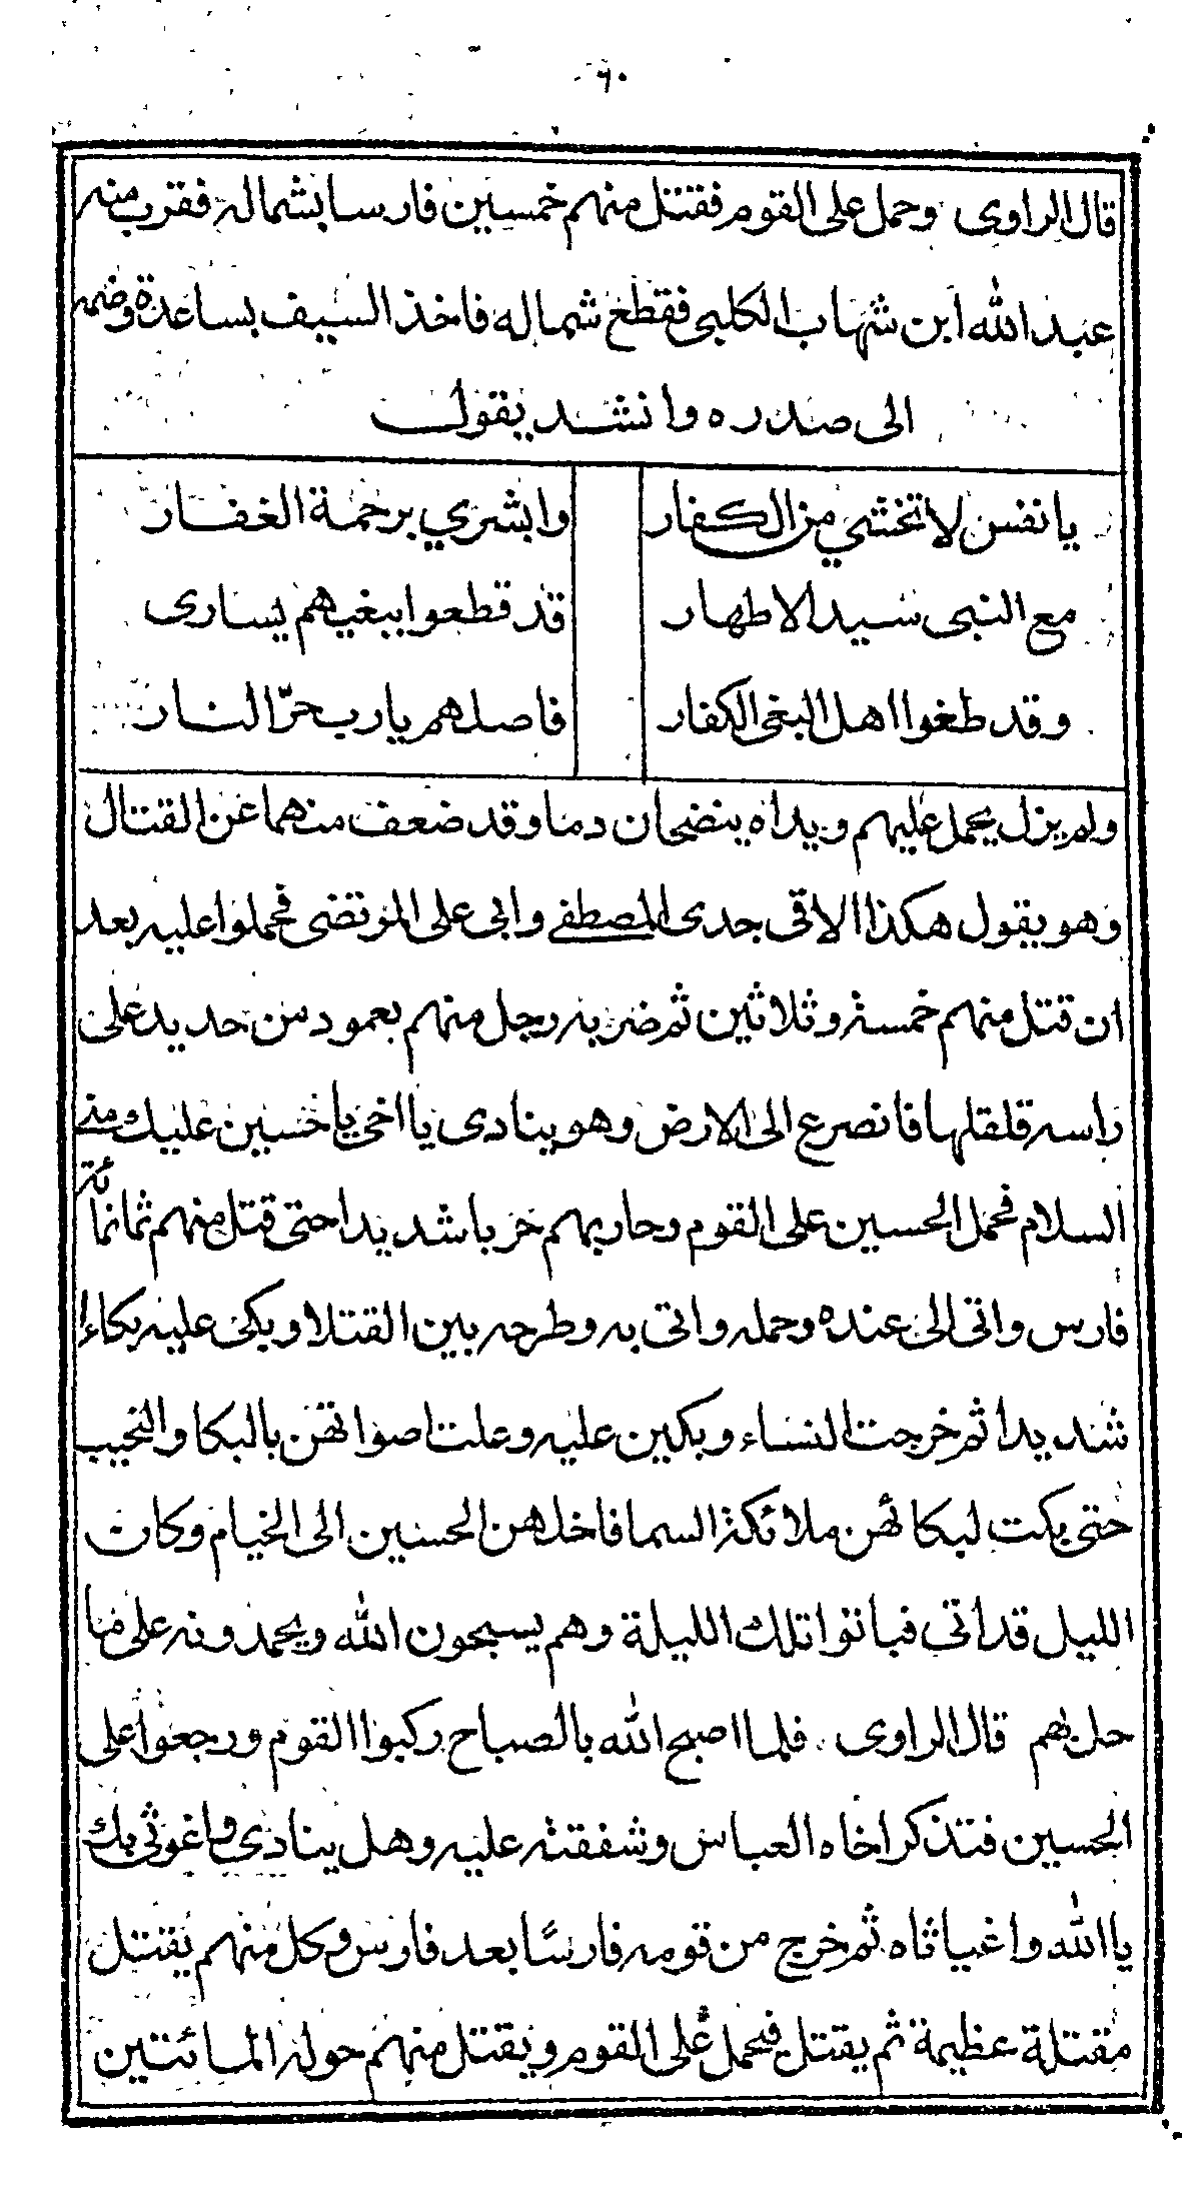 ٦٠
قال الراوى وحمل على القوم فقتل منهم خمسين فارسا بشماله فقرب منه
عبد الله ابن شهاب الكلبى فقطع شماله فاخذ السيف بساعده وضمه
الى صدره وانشد يقول
يا نفس لا تخشي من الكفار وابشري برحمة الغفار
مع النبى سيد الاطهار قد قطعوا ببغيهم يسارى
وقد طغوا اهل البغى الكفار فاصلهم يارب حرّ النار
ولم يزل يحمل عليهم ويداه ينضحان دما وقد ضعف منهما عن القتال
وهو يقول هكذا الاقى جدى المصطفى وابى على المرتضى فحملوا عليه بعد
ان قتل منهم خمسة وثلاثين ثم ضربه رجل منهم بعمود من حديد على
راسه قلقلها فانصرع الى الارض وهو ينادى يا اخى يا حسين عليك منى
السلام فحمل الحسين على القوم وحاربهم حربا شديدا حتى قتل منهم ثمانمائة
فارس واتى الى عنده وحمله واتى به وطرحه بين القتلا وبكى عليه بكاءا
شديدا ثم خرجت النساء وبكين عليه وعلت اصواتهن بالبكا والنحيب
حتى بكت لبكائهن ملائكة السما فاخلهن الحسين الى الخيام وكان
الليل قد اتى فباتوا تلك الليلة وهم يسبحون الله ويحمدونه على ما
حل بهم قال الراوى فلما اصبح الله بالصباح ركبوا القوم ورجعوا على
الحسين فتذكر اخاه العباس وشفقته عليه وهل ينادى واغوثى بك
يا الله واغياثاه ثم خرج من قومه فارسًا بعد فارس وكل منهم يقتل
مقتلة عظيمة ثم يقتل فيحمل على القوم ويقتل منهم حوله المائتين